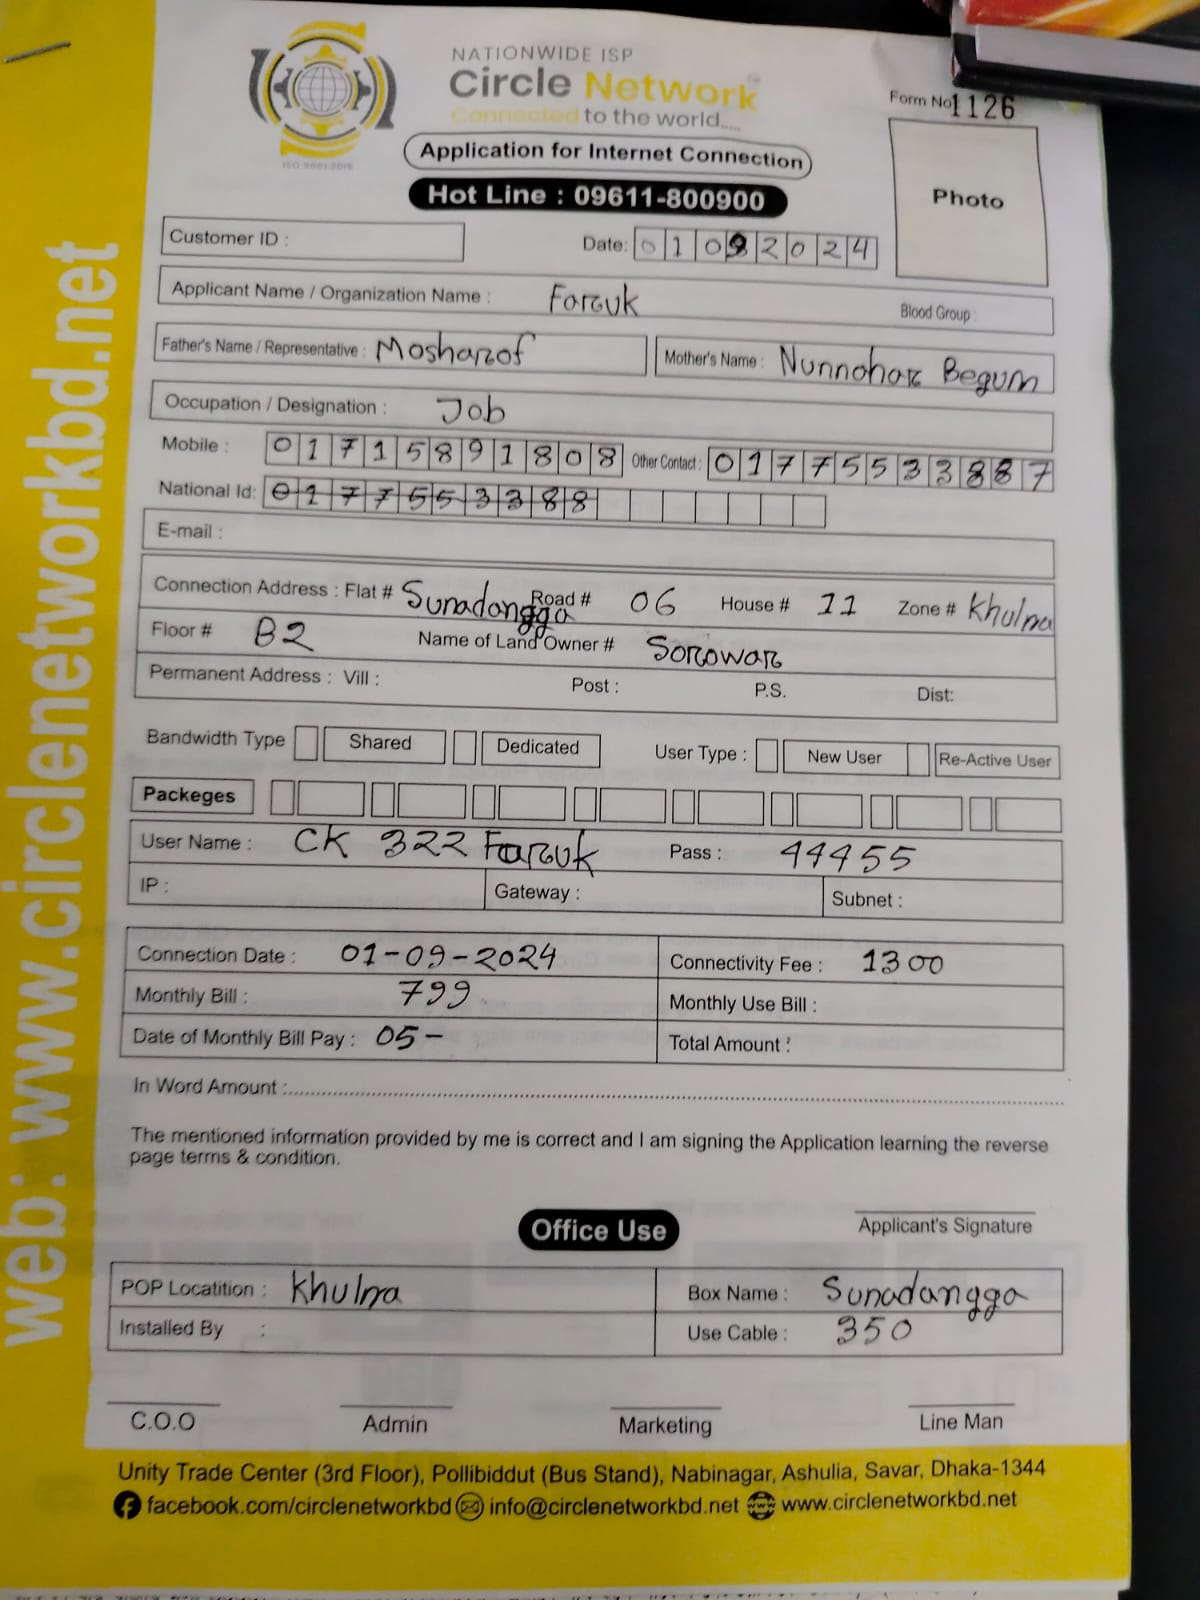 NATIONWIDE ISP
Circle Network
Connected to the world.....
ISO 9001:2015
Form No 1126
Application for Internet Connection
Hot Line : 09611-800900
Photo
Customer ID :
Date: 01092024
Applicant Name / Organization Name : Faruk Blood Group :
Father's Name / Representative : Mosharof Mother's Name : Nunnohar Begum
Occupation / Designation : Job
Mobile : 01715891808 Other Contact : 01775533887
National Id: 0177553388
E-mail :
Connection Address : Flat # Sunadangga Road # 06 House # 11 Zone # Khulna
Floor # B2 Name of Land Owner # Sorowar
Permanent Address : Vill : Post : P.S. Dist:
Bandwidth Type Shared Dedicated User Type : New User Re-Active User
Packeges
User Name : CK 322 Faruk Pass : 44455
IP : Gateway : Subnet :
Connection Date : 01-09-2024 Connectivity Fee : 1300
Monthly Bill : 799 Monthly Use Bill :
Date of Monthly Bill Pay : 05- Total Amount :
In Word Amount :
The mentioned information provided by me is correct and I am signing the Application learning the reverse
page terms & condition.
Applicant's Signature
Office Use
POP Locatition : Khulna Box Name : Sunadangga
Installed By : Use Cable : 350
C.O.O Admin Marketing Line Man
Unity Trade Center (3rd Floor), Pollibiddut (Bus Stand), Nabinagar, Ashulia, Savar, Dhaka-1344
facebook.com/circlenetworkbd info@circlenetworkbd.net www.circlenetworkbd.net
web: www.circlenetworkbd.net